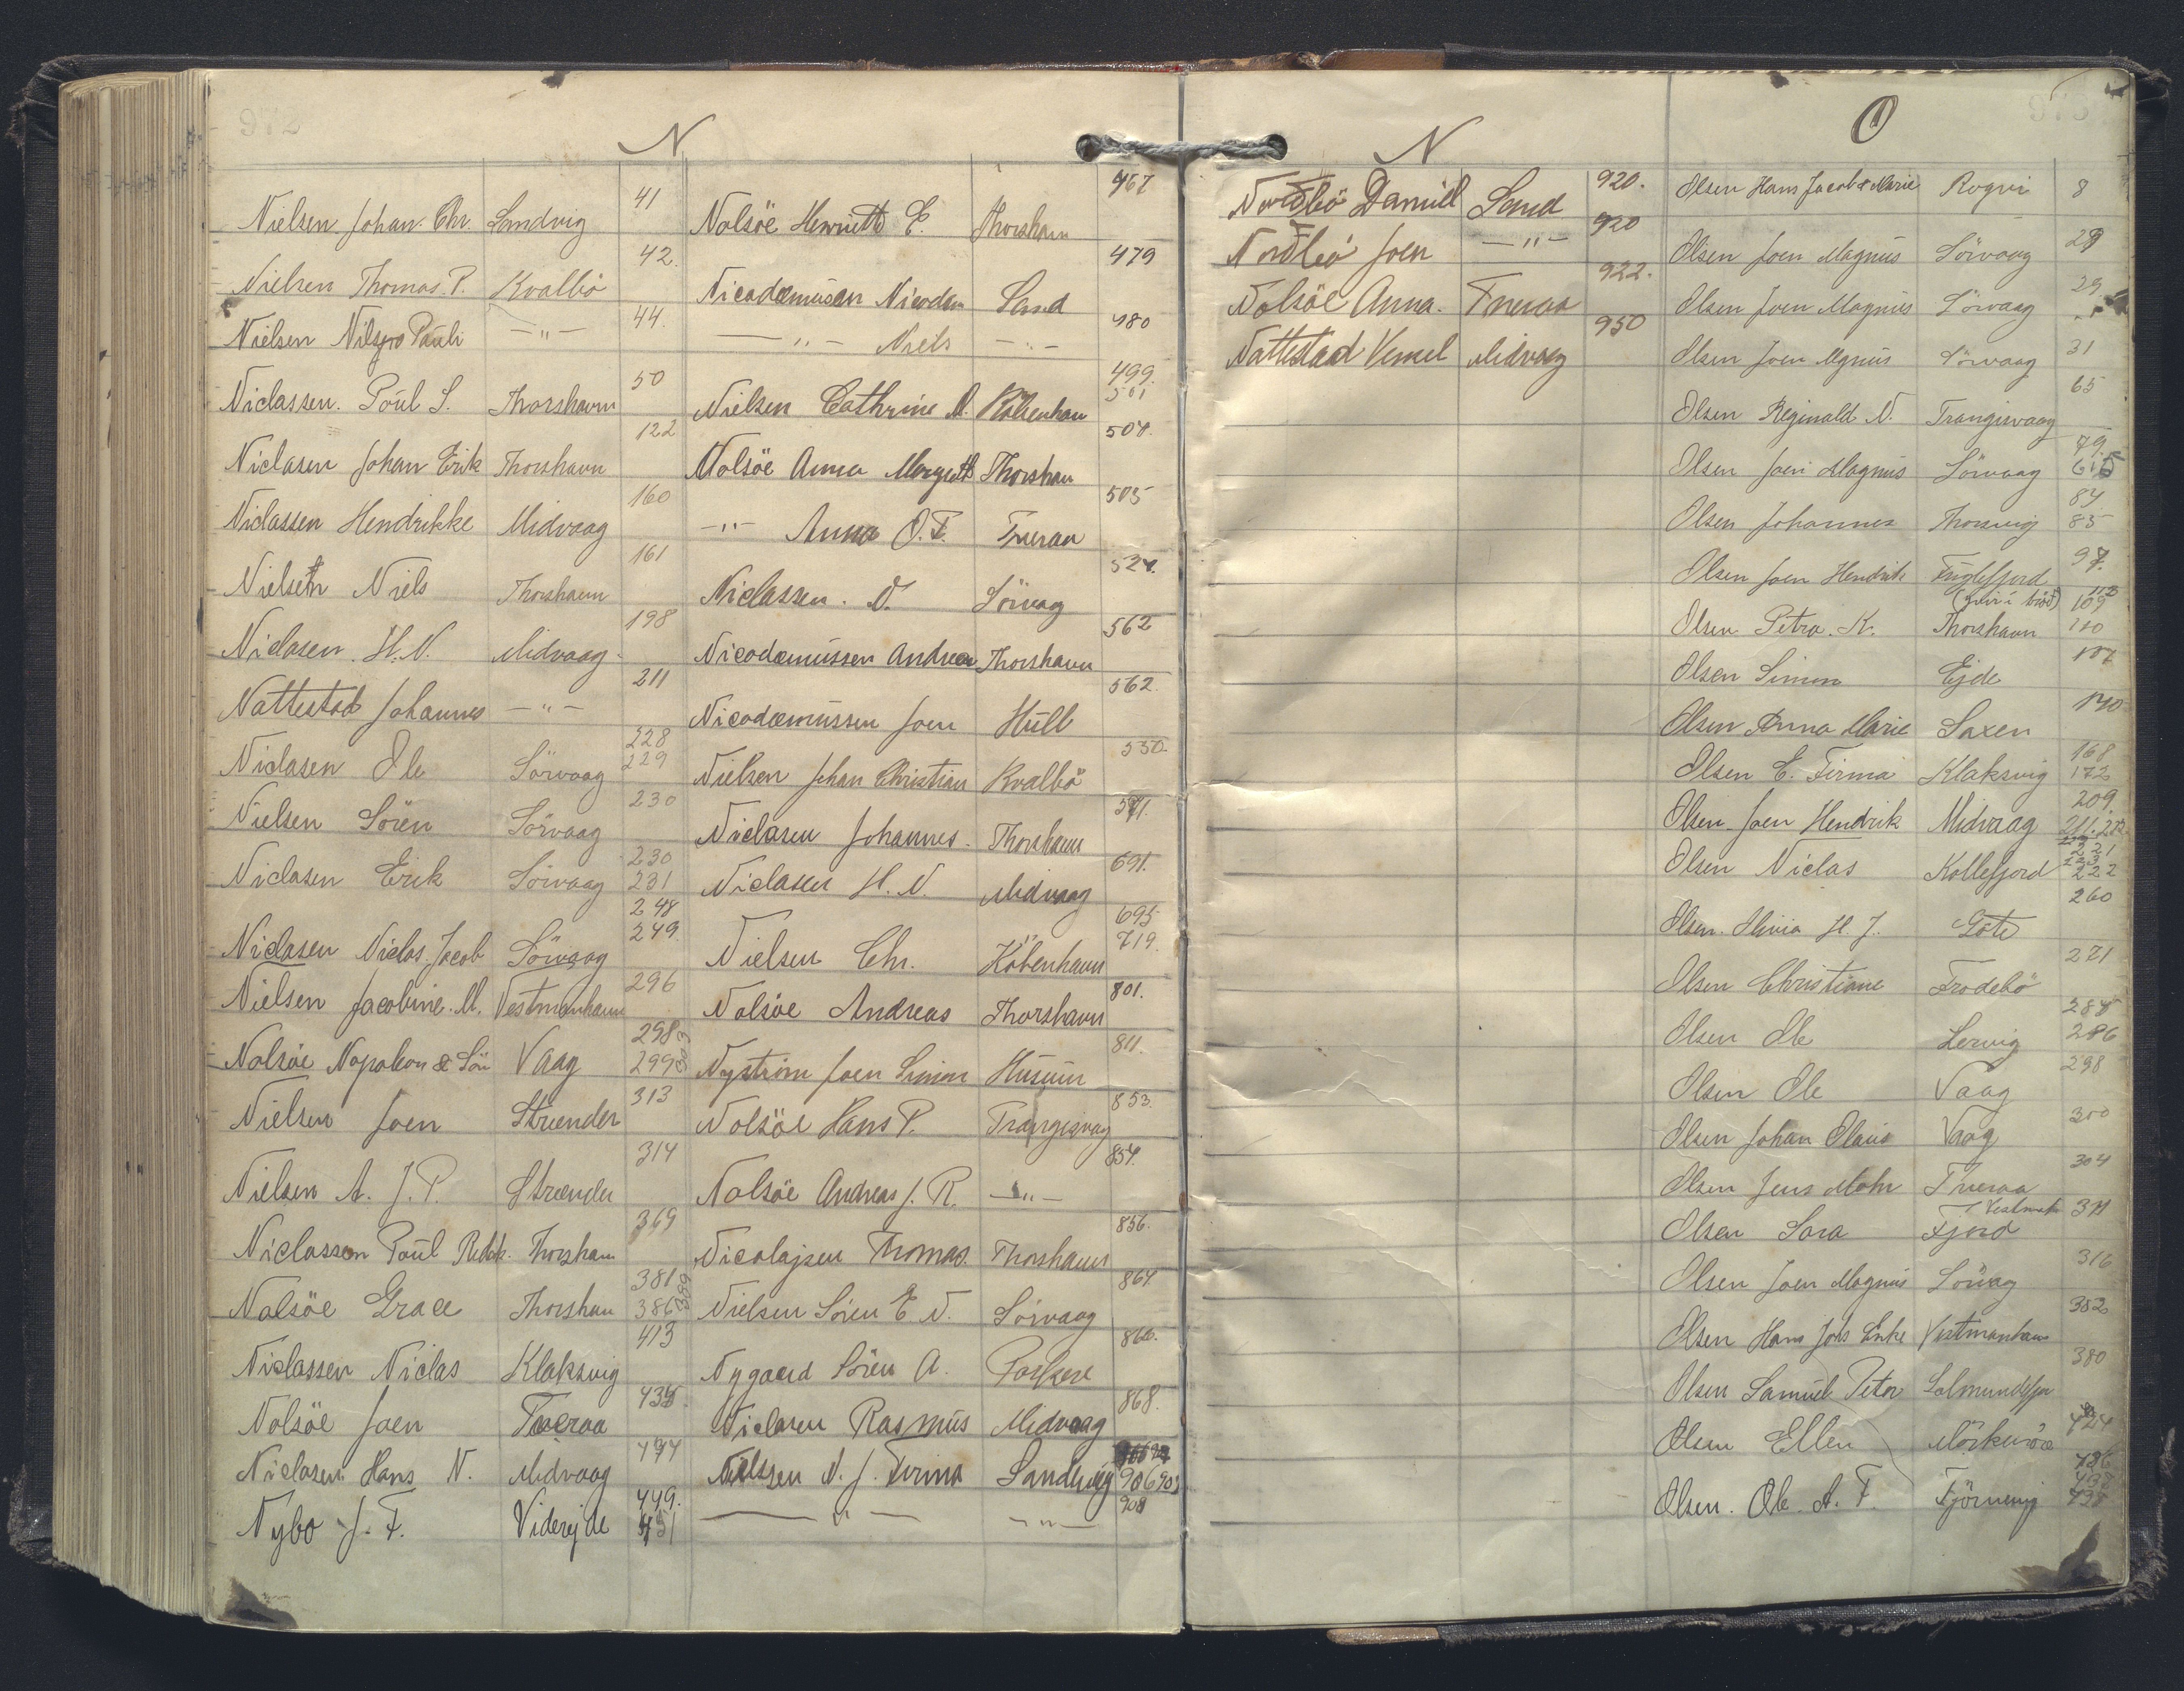 972
N
Nielsen Johan Chr. Sandvig 41
Nielsen Thomas P. Kvalbö 42.
Nielsen Pauli — " — 44.
Niclassen. Poul S. Thorshavn 50
Niclasen Johan Erik Thorshavn 122
Niclassen Hendrikke Midvaag 160
Niels Thorshavn 161
Niclasen. H. N. Midvaag 198
Nattestad Johannes — " — 211
Niclasen Ole Sörvaag 228 229
Nielsen Sören Sörvaag 230
Niclasen Erik Sörvaag 230 231
Niclasen Niclas Jacob Sörvaag 248 249.
Nielsen Jacobine. M. Vestmanhavn 296
Nolsöe Napoleon & Sön Vaag 298 299 303
Nielsen Joen Strænder 313
Nielsen A. J. P. Strænder 314
Niclassen Poul Thorshavn 369
Nolsöe Grace Thorshavn 381 386 389
Niclassen Niclas Klaksvig 413
Nolsöe Joen Tveraa
Niclasen Hans N. Midvaag
Nybo J. F. Viderejde 449. 451
Nolsöe Henriette E. Thorshavn 467
Nicodæmusen Nicodem Sand 479
— " — Niels — " — 480
Nielsen Cathrine A. Köbenhavn 499. 501
Nolsöe Anna Margreth Thorshavn 504.
— " — Anna O. F. Tveraa 505
Niclassen. D. Sörvaag 524.
Nicodæmussen Andreas Thorshavn 562
Nicodæmussen Joen 562.
Nielsen Johan Christian Kvalbö 550.
Niclasen Johannes Thorshavn 571.
Niclasen H. N. Midvaag 691.
Nielsen Chr. Köbenhavn 695 719.
Nolsöe Andreas Thorshavn 801.
Nyström Joen Simon Husum 811.
Nolsöe Hans P. Trangisvag 853.
Nolsöe Andreas J. R. — " — 854.
Nicolajsen Thomas. Thorshavn 856.
Nielsen Sören E. N. Sörvaag 864
Nygaard Sören A. Porkere 866.
Niclasen Rasmus Midvaag 868.
Nielsen N. J. Firma Sandvig 906 907
— " — — " — 908
N
Nordbö Daniel Sand 920.
Nordbö Joen — " — 920
Nolsöe Anna. Tveraa 922.
Nattestad Midvaag 950
O
Olsen Hans Jacob & Marie 8
Olsen Joen Magnus Sörvaag
Olsen Joen Magnus Sörvaag 29
Olsen Joen Mgnus Sörvaag 31
Olsen Reginald N. Trangisvaag 65
Olsen Joen Magnus Sörvaag 79. 615
Olsen Johannes Thorsvig 84 85
Olsen Joen Hendrik Fuglefjord 97.
Olsen Petra. K. Thorshavn 109 110
Olsen Simon Ejde
Olsen Anna Marie Saxen 140
Olsen E. Firma Klaksvig 168 172
Olsen Joen Hendrik Midvaag 209.
Olsen Niclas Kollefjord 221 222
Olsen. H. J. Göte 260
Olsen Christiane Frodebö 271
Olsen Ole Lervig 286
Olsen Ole Vaag 298
Olsen Johan Olaus Vaag 300
Olsen Jens Mohr Tveraa 304
Olsen Sara Fjord 311
Olsen Joen Magnus Sörvag 316
Olsen Hans Vestmanhavn 382
Olsen Samuel Peter 380
Olsen Ellen 424
Olsen. Ole. A. F. 436 437